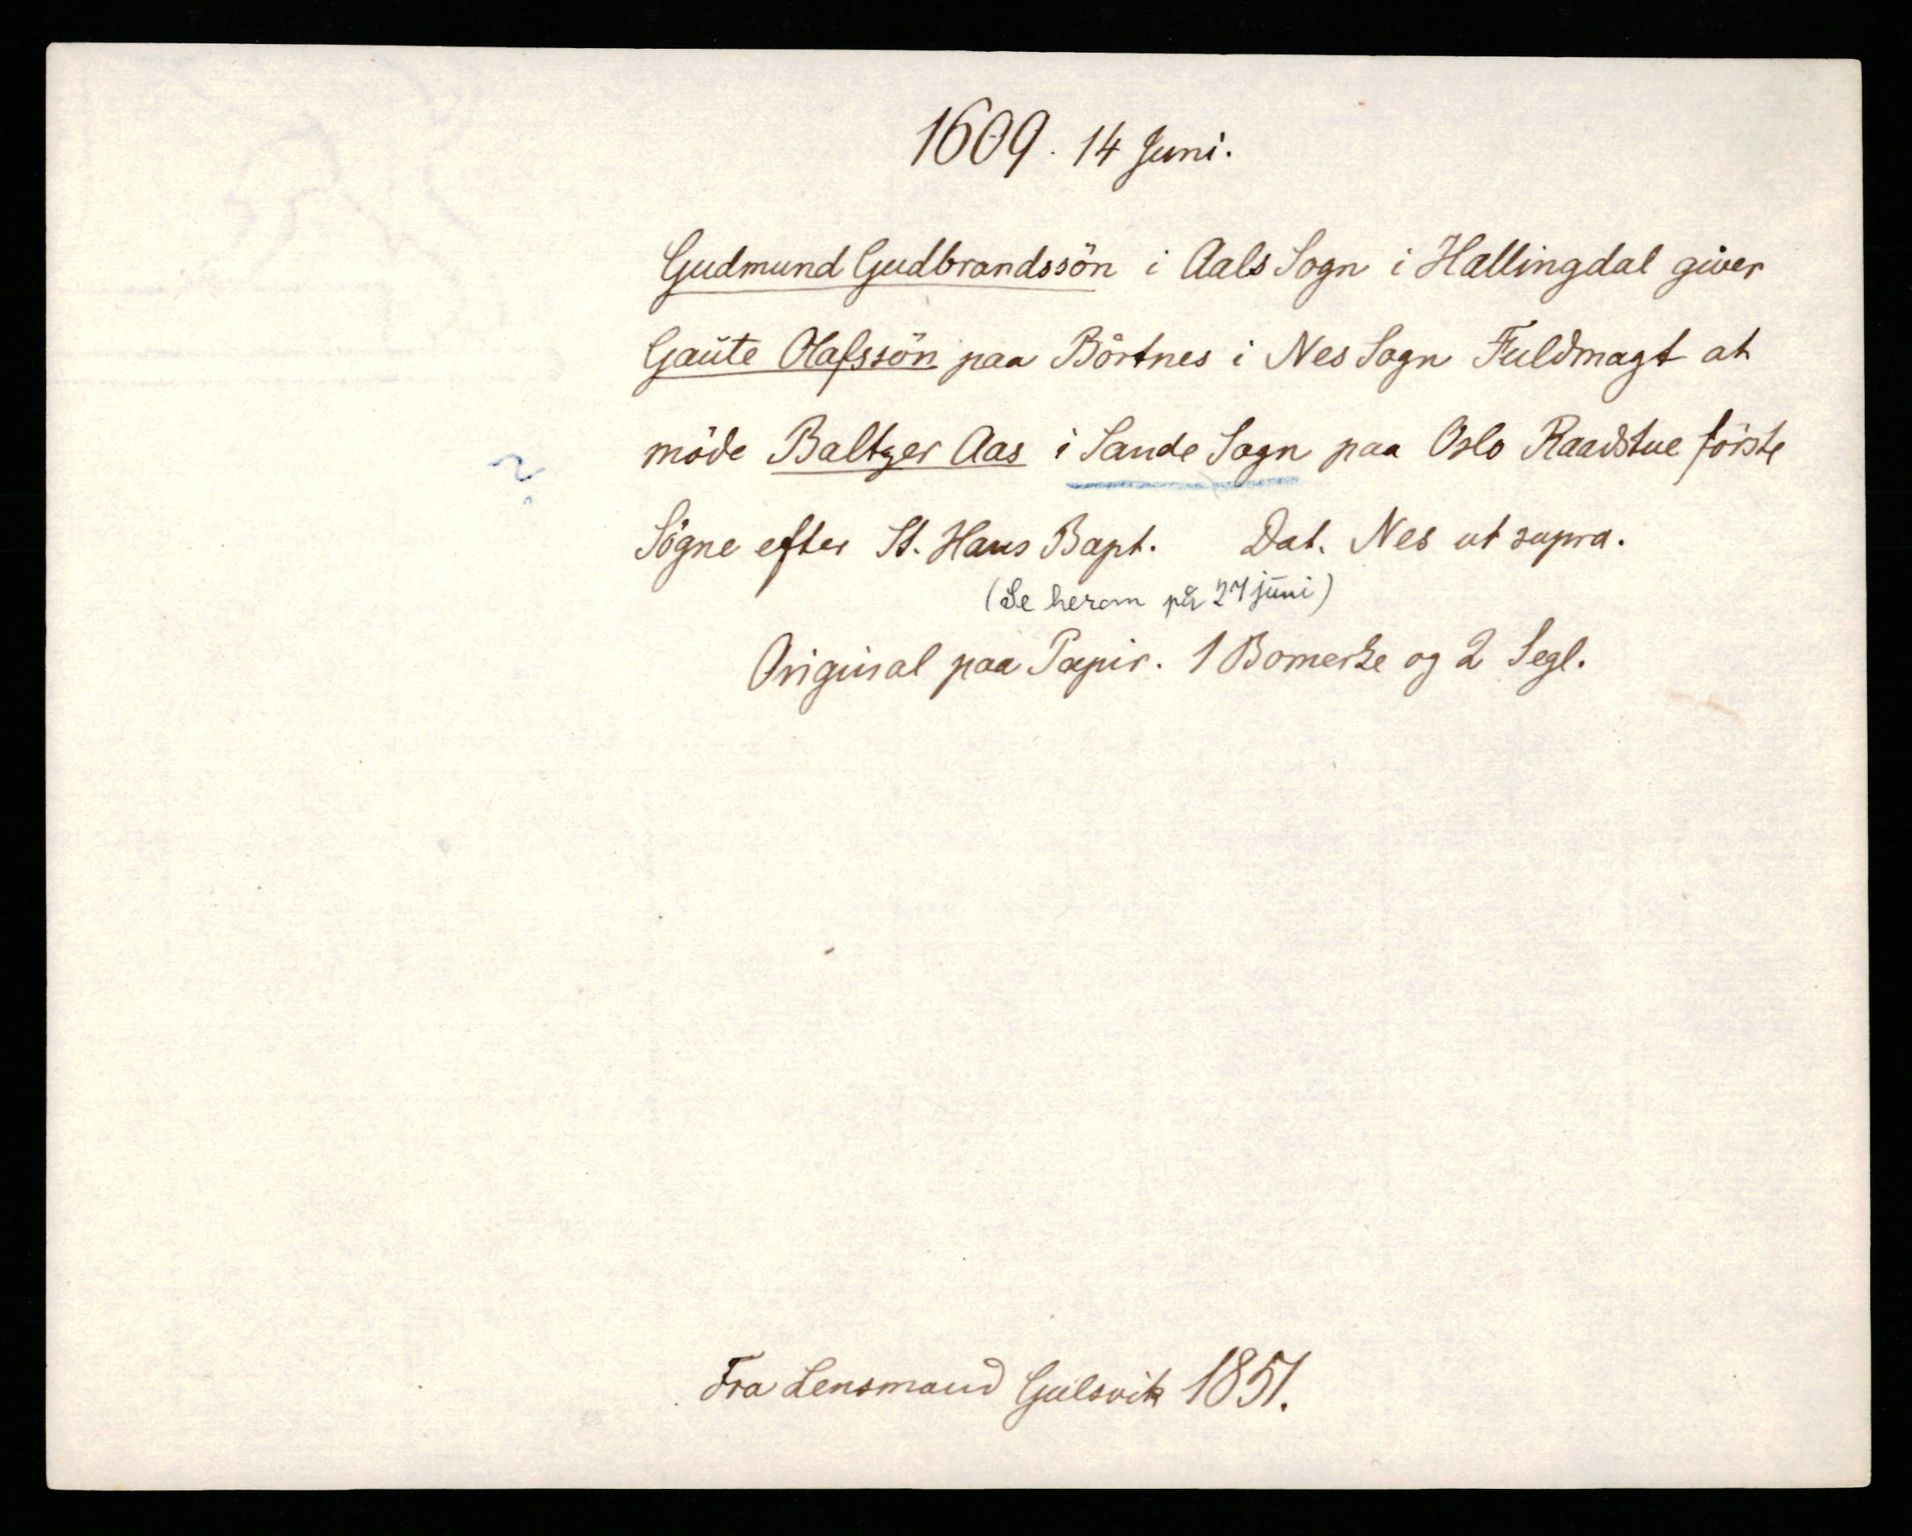 1609. 14 Juni.
Gudmund Gudbrandssön i Aals Sogn i Hallingdal giver
Gaute Olafssön paa Börtnes i Nes Sogn Fuldmagt at
möde Baltzer Aas i Sande Sogn paa Oslo Raadstue förste
?
Sögne efter St. Hans Bapt. Dat. Nes ut supra.
(Se herom på 27 juni)
Original paa Papir. 1 Bomerke og 2 Segl.
Fra Lensmand Gulsvik 1851.